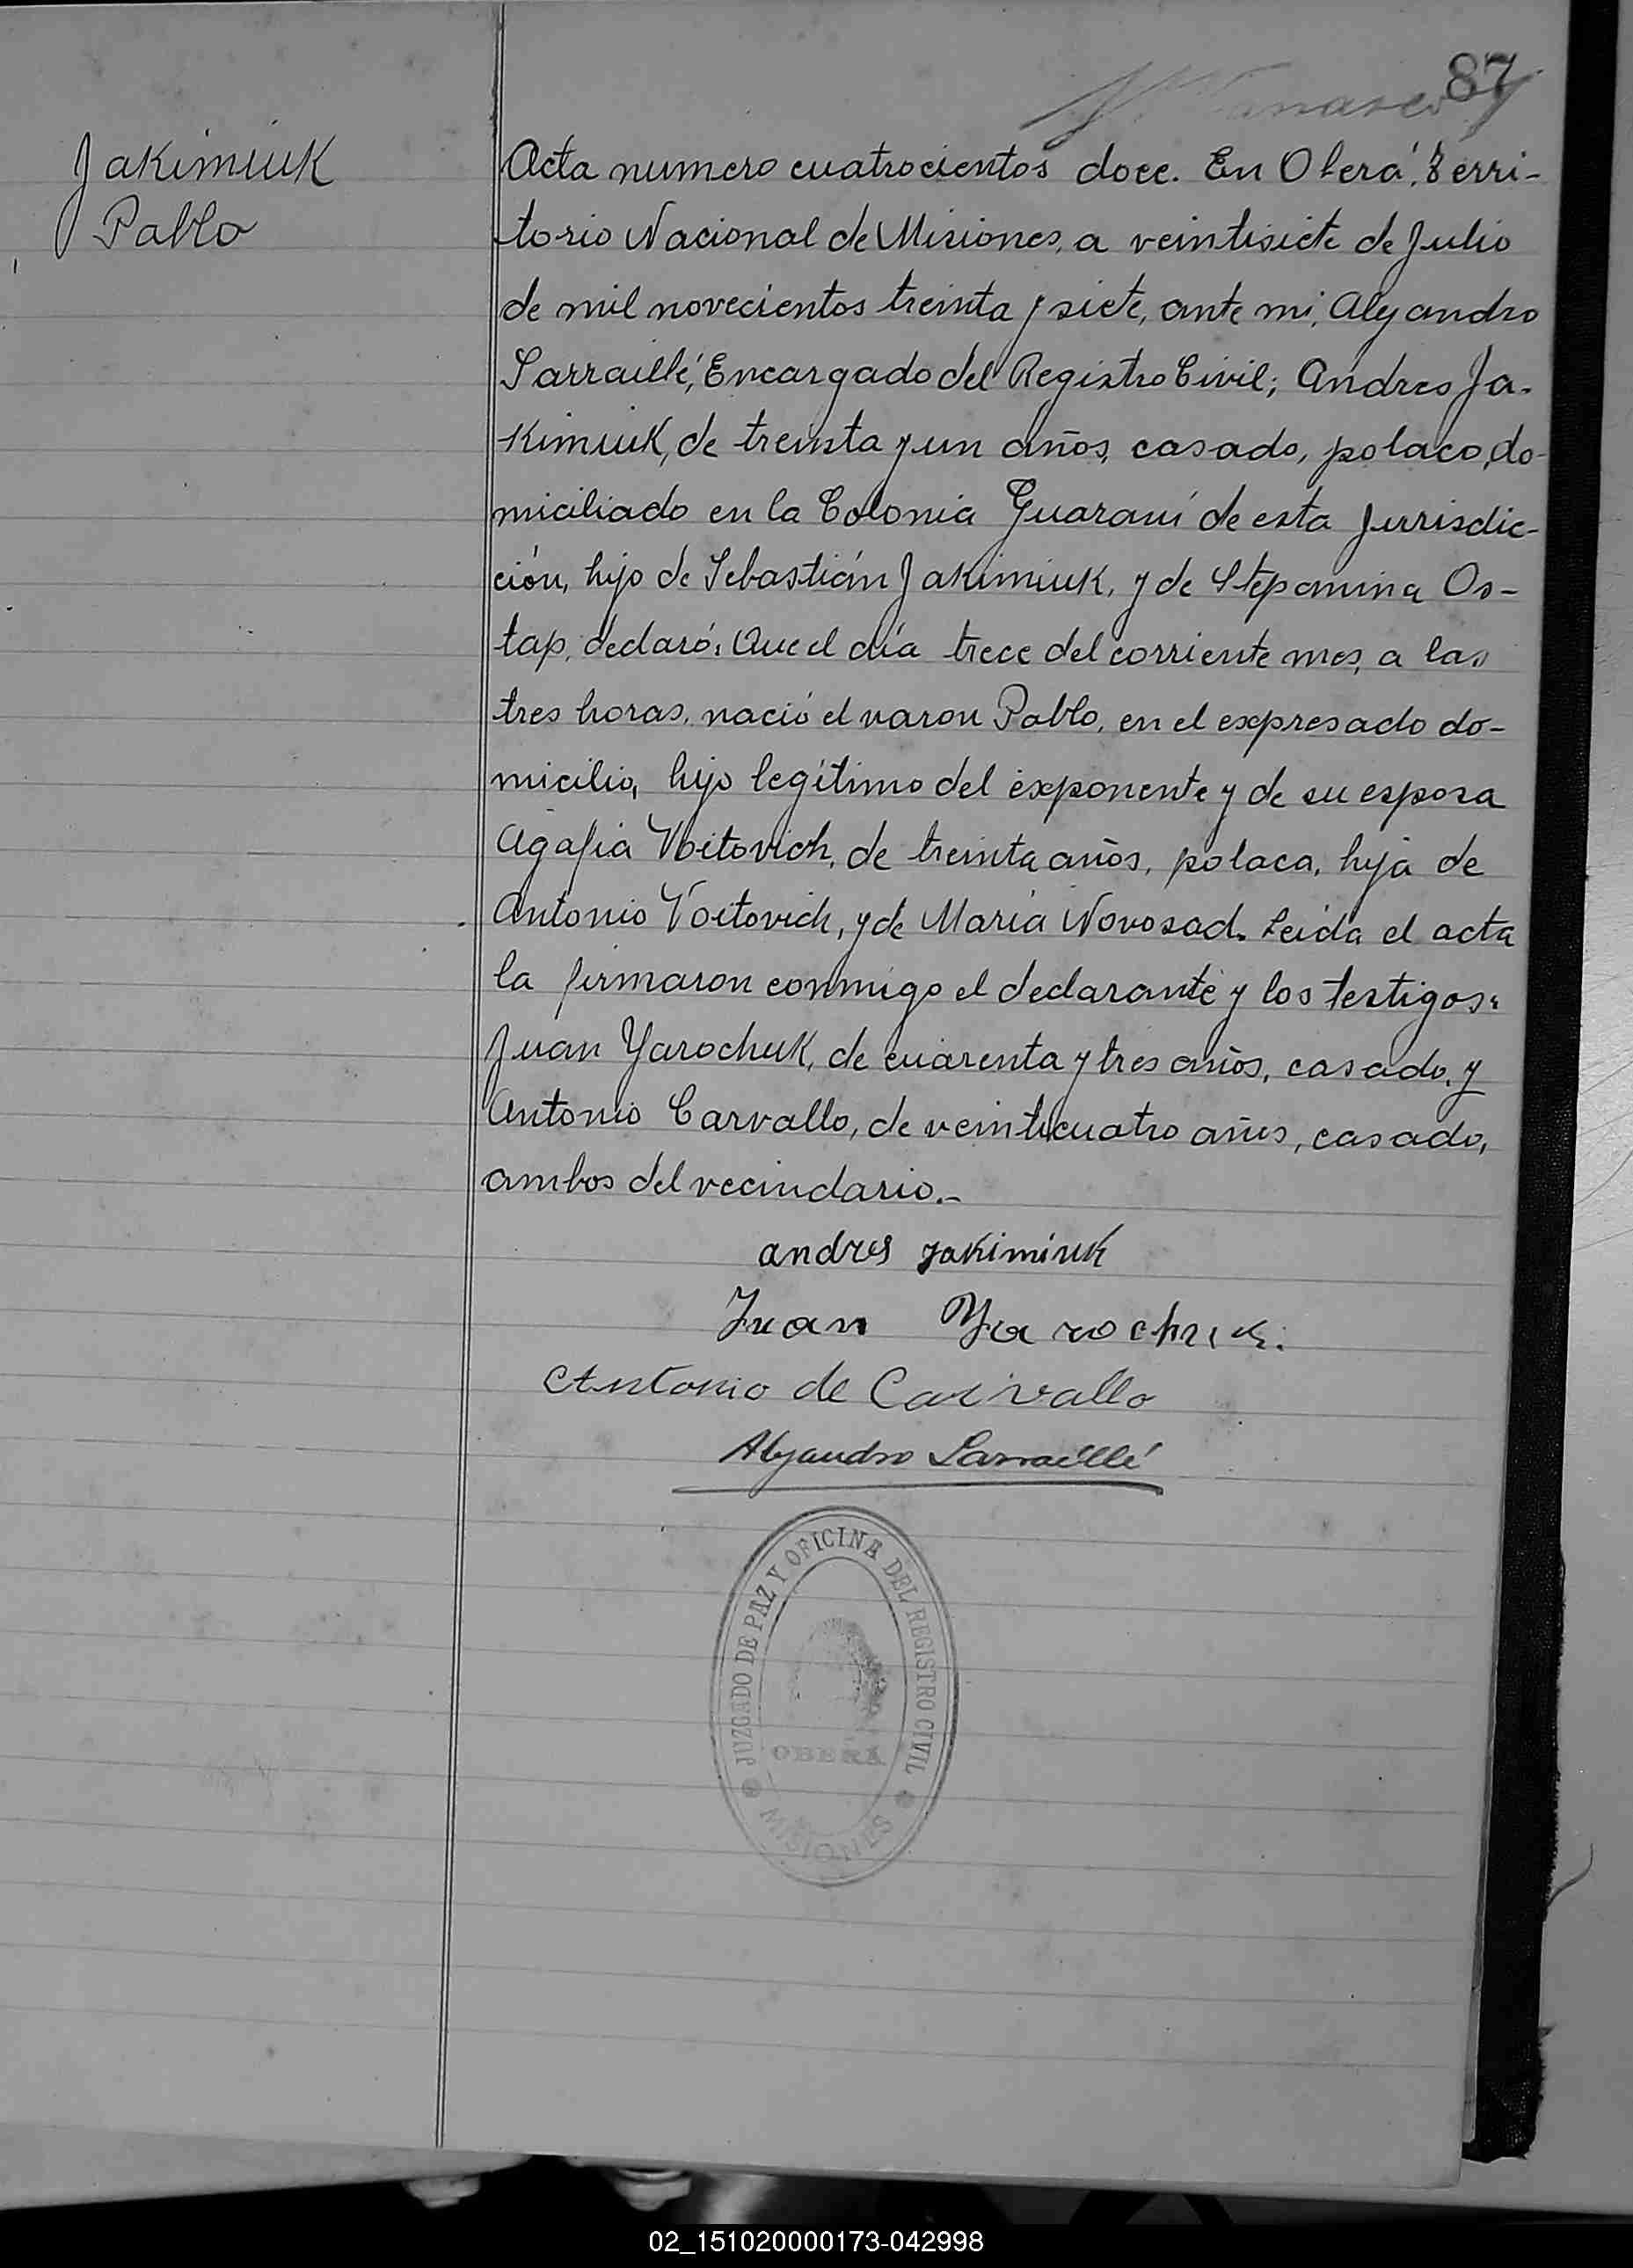 87
Jakimiuk
Pablo
Acta numero cuatrocientos doce. En Oberá, Terri-
torio Nacional de Misiones, a veintisiete de Julio
de mil novecientos treinta y siete, ante mi, Alejandro
Sarraillé, Encargado del Registro Civil; Andres Ja-
kimiuk, de treinta y un años, casado, polaco, do-
miciliado en la Colonia Guaraní de esta jurisdic-
ción, hijo de Sebastián Jakimiuk, y de Stepamina Os-
tap, declaró: Que el día trece del corriente mes, a las
tres horas, nació el varon Pablo, en el expresado do-
micilio, hijo legítimo del exponente y de su esposa
Agafia Voitovich, de treinta años, polaca, hija de
Antonio Voitovich, y de María Novosad. Leída el acta
la firmaron conmigo el declarante y los testigos:
Juan Yarochuk, de cuarenta y tres años, casado, y
Antonio Carvallo, de veinticuatro años, casado,
ambos del vecindario.-
andres jakimiuk
Juan Yarochuk.
Antonio de Carvallo
Alejandro Sarraillé
JUZGADO DE PAZ Y OFICINA DEL REGISTRO CIVIL
OBERÁ
MISIONES
02_151020000173-042998